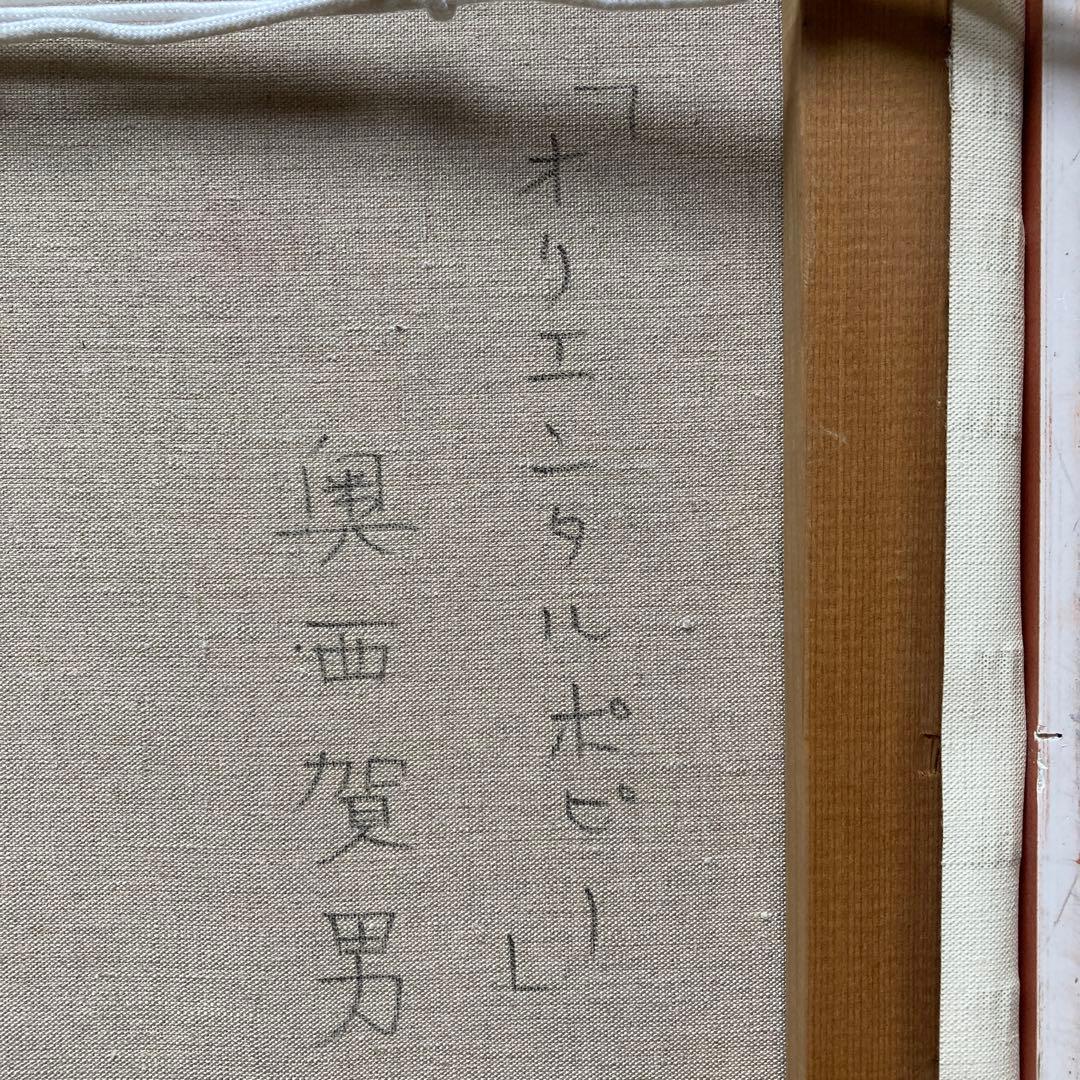 「オリエンタルポピー」
奥西賀男